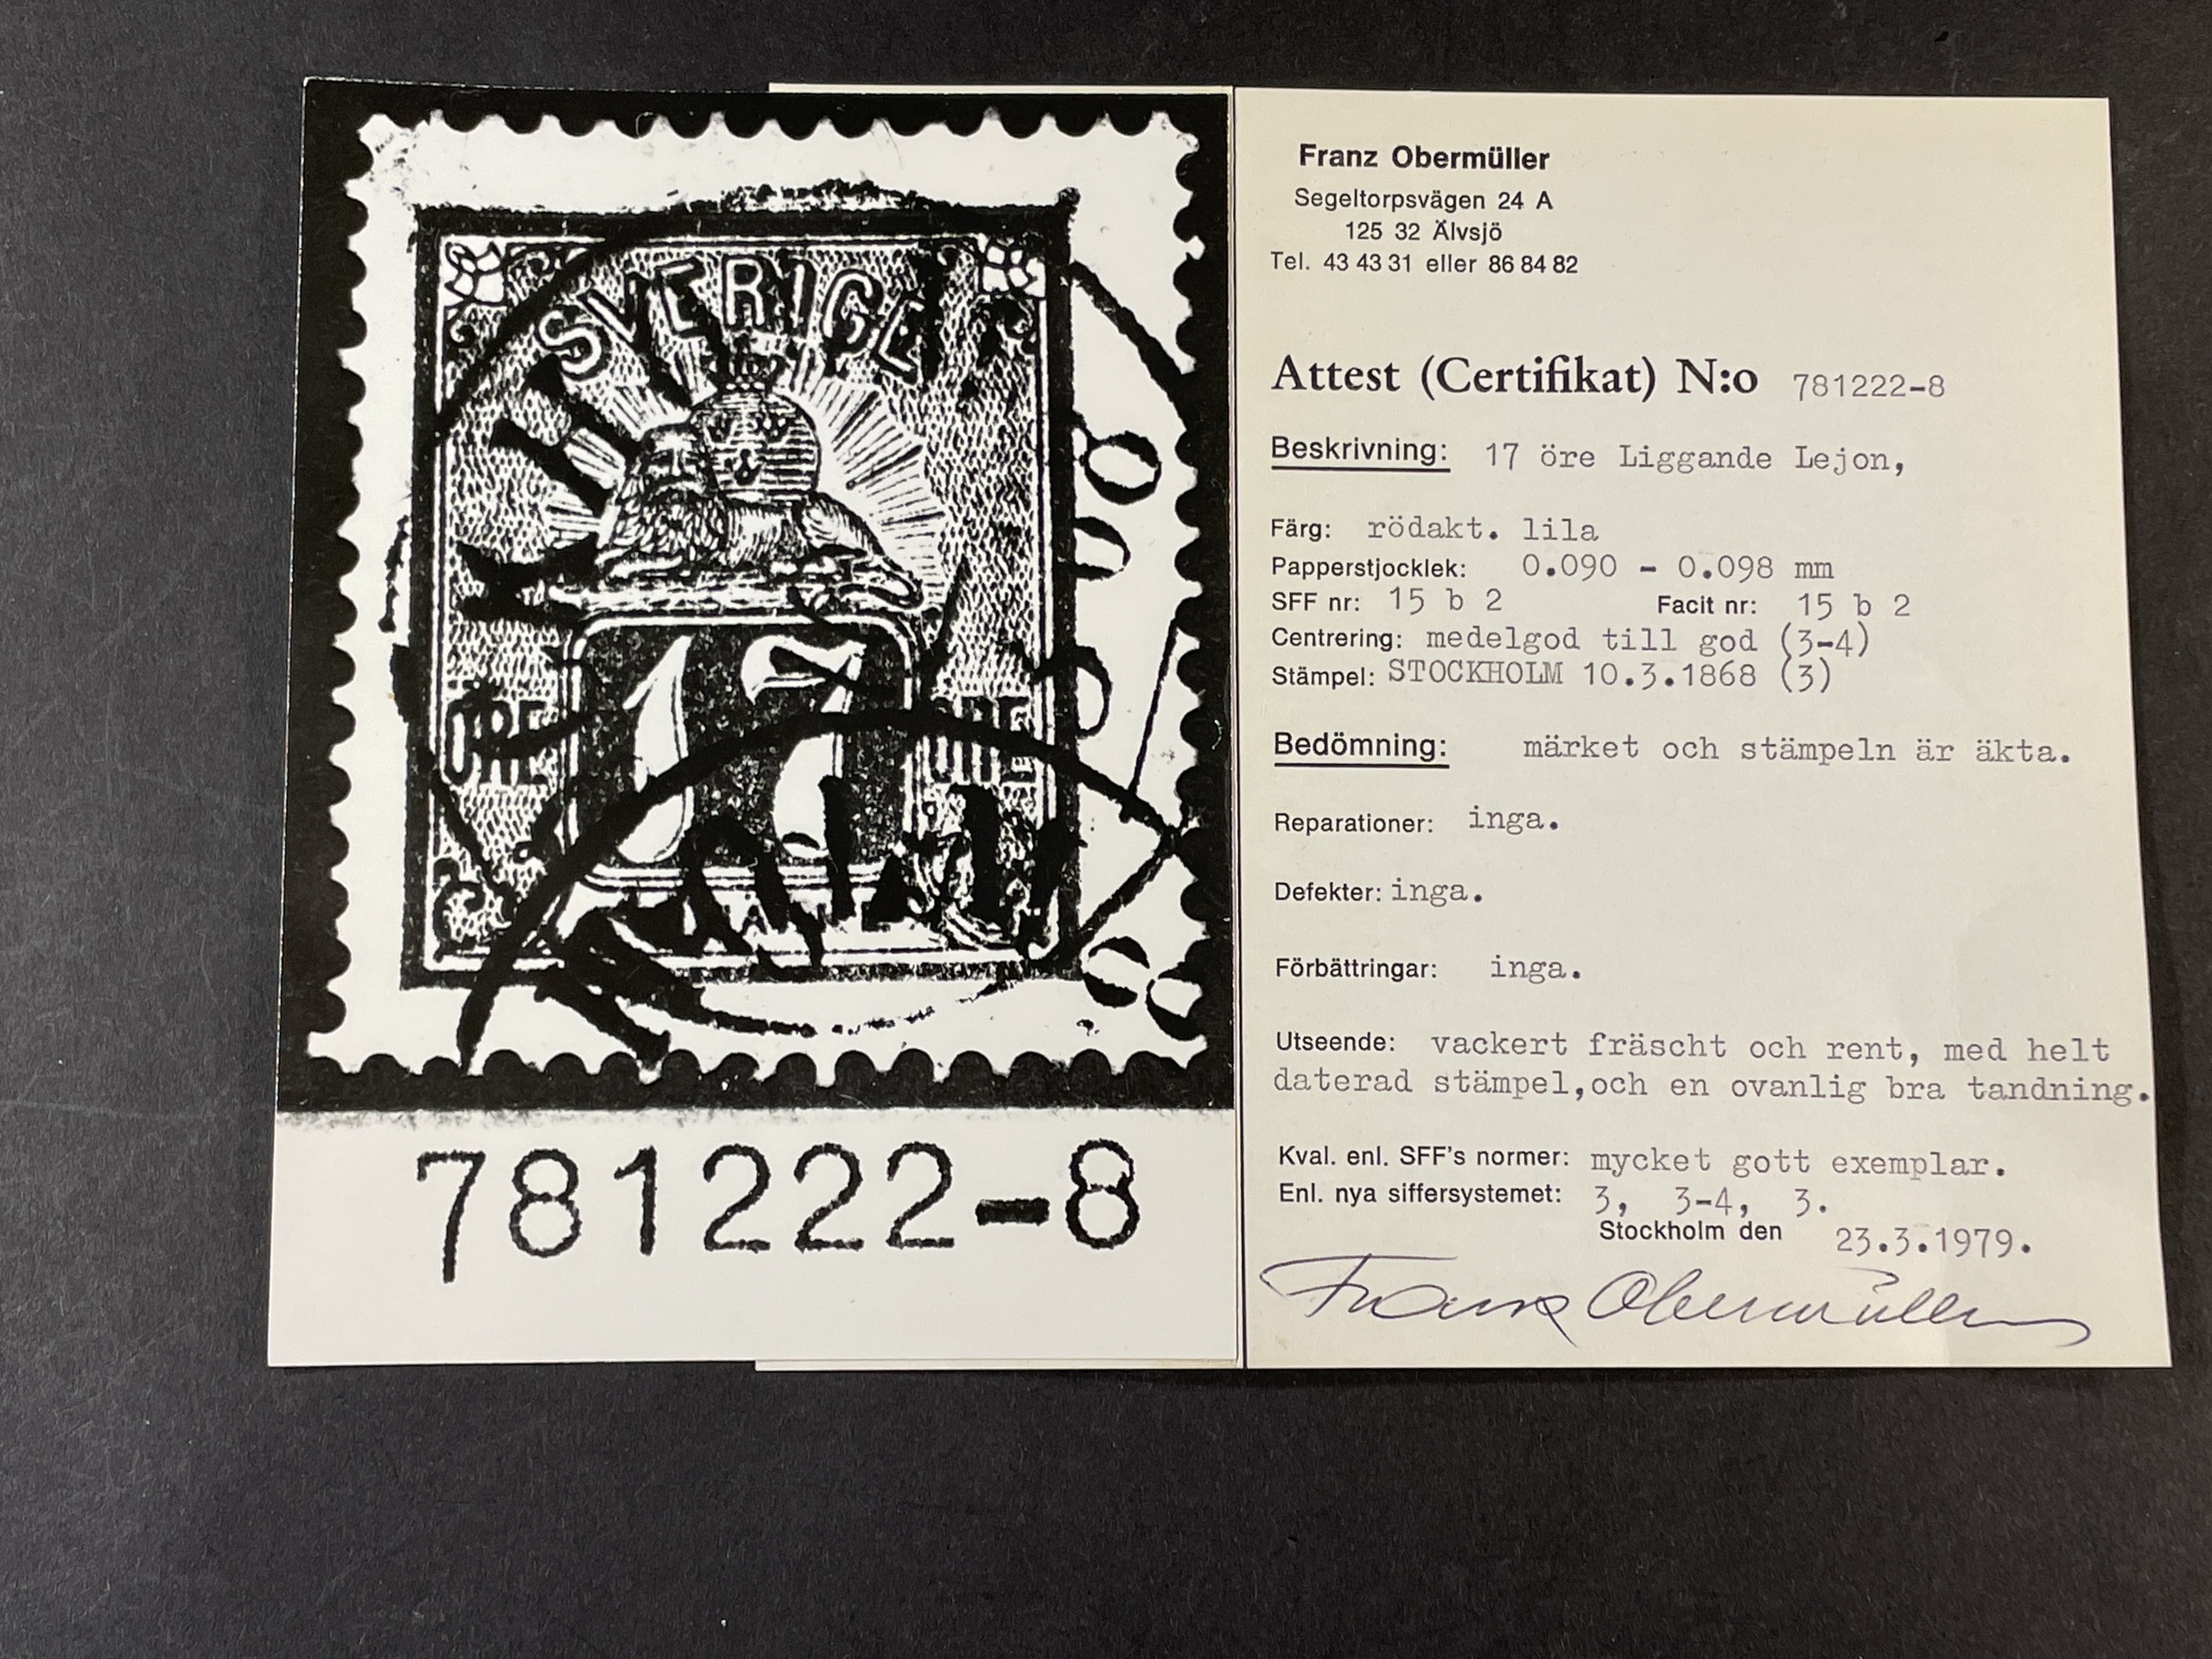 SVERIGE
17
ÖRE
ÖRE
781222-8
Franz Obermüller
Segeltorpsvägen 24 A
125 32 Älvsjö
Tel. 43 43 31 eller 86 84 82
Attest (Certifikat) N:o 781222-8
Beskrivning: 17 öre Liggande Lejon,
Färg: rödakt. lila
Papperstjocklek: 0.090 - 0.098 mm
SFF nr: 15 b 2 Facit nr: 15 b 2
Centrering: medelgod till god (3-4)
Stämpel: STOCKHOLM 10.3.1868 (3)
Bedömning: märket och stämpeln är äkta.
Reparationer: inga.
Defekter: inga.
Förbättringar: inga.
Utseende: vackert fräscht och rent, med helt
daterad stämpel,och en ovanlig bra tandning.
Kval. enl. SFF's normer: mycket gott exemplar.
Enl. nya siffersystemet: 3, 3-4, 3.
Stockholm den 23.3.1979.
Franz Obermüller